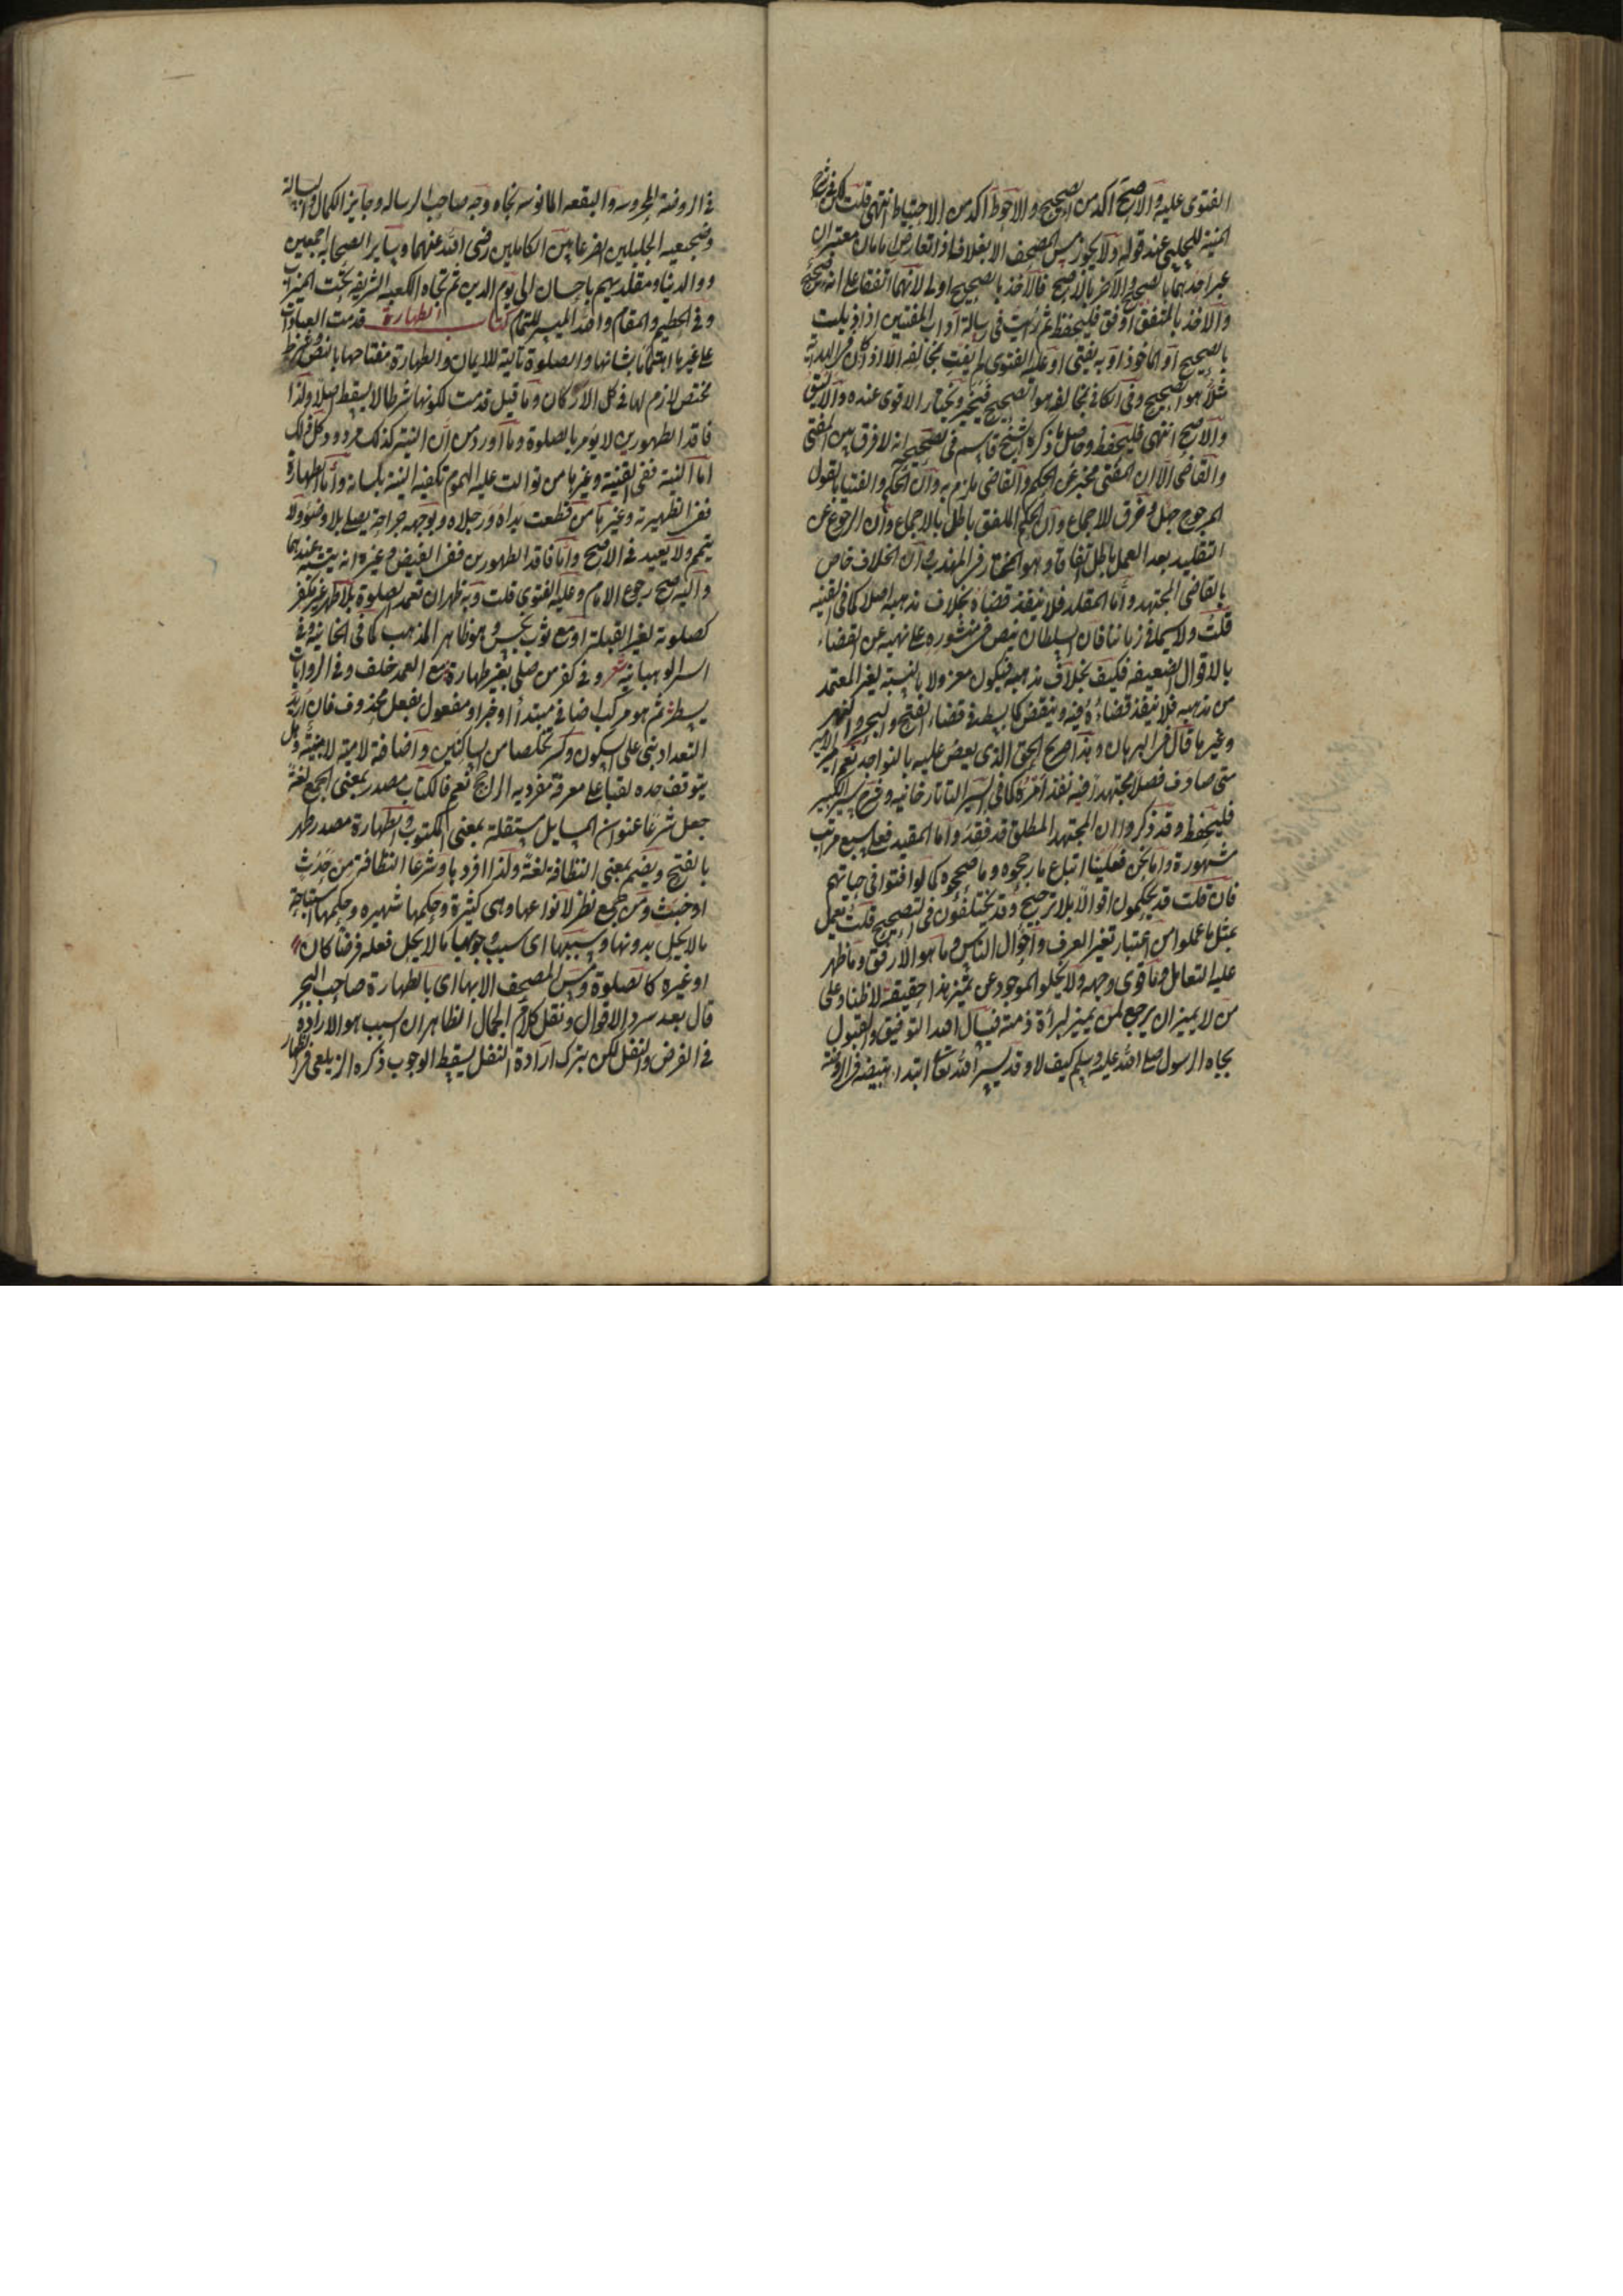 الفتوى عليه والاصح آكد من الصحيح والاحوط آكد من الاحتياط انتهى قلت لكن فى شرح
المنية للحلبي عند قوله ولا يجوز مس المصحف الا بغلافه اذا تعارض امامان معتبران
عبر احدهما بالصحيح والآخر بالاصح فالاخذ بالصحيح اولى لانهما اتفقا على انه صحيح
والاخذ بالمتفق اوفق فليحفظ ثم رأيت فى رسالة آداب المفتين اذا ذيلت
بالصحيح او المأخوذ او به يفتى او عليه الفتوى لم يفت بمخالفه الا اذا كان فى الهداية
مثلا هو الصحيح وفى الكافى بمخالفه هو الصحيح فيخير ويختار الاقوى عنده والاليق
والاصح انتهى فليحفظ وحاصل ما ذكره الشيخ قاسم فى تصحيحه انه لا فرق بين المفتى
والقاضى الا ان المفتى مخبر عن الحكم والقاضى ملزم به وان الحكم والفتيا بالقول
المرجوح جهل وخرق للاجماع وان الحكم الملفق باطل بالاجماع وان الرجوع عن
التقليد بعد العمل باطل اتفاقا وهو المختار فى المذهب وان الخلاف خاص
بالقاضى المجتهد واما المقلد فلا ينفذ قضاؤه بخلاف مذهبه اصلا كما فى القنيه
قلت ولا سيما فى زماننا فان السلطان ينص فى منشوره على نهيه عن القضاء
بالاقوال الضعيفه فكيف بخلاف مذهبه فيكون معزولا بالنسبة لغير المعتمد
من مذهبه فلا ينفذ قضاؤه فيه وينقض كما بسط فى قضاء الفتح والبحر والنهر
وغيرها قال فى البرهان وهذا صريح الحق الذى يعض عليه بالنواجذ نعم امر الامير
متى صادف فصلا مجتهدا فيه نفذ امره كما فى السير التاتارخانيه وشرح السير الكبير
فليحفظ وقد ذكروا ان المجتهد المطلق قد فقد واما المقيد فعلى سبع مراتب
مشهورة واما نحن فعلينا اتباع ما رجحوه وما صححوه كما لو افتوا فى حياتهم
فان قلت قد يحكمون اقوالا بلا ترجيح وقد يختلفون فى التصحيح قلت يعمل
بمثل ما عملوا من اعتبار تغير العرف واحوال الناس وما هو الارفق وما ظهر
عليه التعامل وما قوى وجهه ولا يخلو الموجود عن تمييز هذا حقيقة لا ظنا وعلى
من لا يميز ان يرجع لمن يميز لبراءة ذمته فنسأل الله التوفيق والقبول
بجاه الرسول صلى الله عليه وسلم كيف لا وقد يسر الله تعالى ابتداء تبييضه فى الروضة
فى الروضة المحروسه والبقعه المانوسه تجاه وجه صاحب الرساله وحايز الكمال والبسالة
وضجيعيه الجليلين الضرغامين الكاملين رضى الله عنهما وساير الصحابه اجمعين
ووالدينا ومقلديهم باحسان الى يوم الدين ثم تجاه الكعبه الشريفه تحت الميزاب
وفى الحطيم والمقام والله الميسر للتمام كتاب الطهارة قدمت العبادات
على غيرها اهتماما بشانها والصلوة تالية للايمان والطهارة مفتاحها بالنص وشرط
مختص لازم لها فى كل الاركان وما قيل قدمت لكونها شرطا لا يسقط اصلا ولذا
فاقد الطهورين لا يؤمر بالصلوة وما اورد من ان النية كذلك مردود كل ذلك
اما النية ففى القنية وغيرها من توالت عليه الهموم تكفيه النية بلسانه واما الطهارة
ففى الظهيرية وغيرها من قطعت يداه ورجلاه وبوجهه جراحة يصلى بلا وضوء ولا
تيمم ولا يعيد فى الاصح واما فاقد الطهورين ففى الفيض وغيره انه يتشبه عندهما
واليه صح رجوع الامام وعليه الفتوى قلت وبه ظهر ان تعمد الصلوة بلا طهر غير مكفر
كصلوته لغير القبلة او مع ثوب نجس وهو ظاهر المذهب كما فى الخانية وفى
السير الوهبانية شعر وفى كفر من صلى بغير طهارة مع العمد خلف وفى الروايات
يسطر ثم هو مركب اضافى مبتدأ او خبر او مفعول لفعل محذوف فان اريد
التعداد بنى على السكون وكسر تخلصا من الساكنين واضافته لامية لا ميمية وهل
يتوقف حده لقبا على معرفة مفرديه الراجح نعم فالكتاب مصدر بمعنى الجمع لغة
جعل شرعا عنوانا لمسايل مستقلة بمعنى المكتوب والطهارة مصدر طهر
بالفتح ويضم بمعنى النظافة لغة ولذا افردها وشرعا النظافة من حدث
او خبث ومن جمع نظر لانواعها وهى كثيرة وحكمها شهيره وحكمها استباحة
ما لا يحل بدونها وسببها اى سبب وجوبها ما لا يحل فعله فرضا كان
او غيره كالصلوة ومس المصحف الا بها اى بالطهارة صاحب البحر
قال بعد سرد الاقوال ونقل كلام الكمال الظاهر ان السبب هو الارادة
فى الفرض والنفل لكن بترك ارادة النفل يسقط الوجوب ذكره الزيلعى فى الظهار